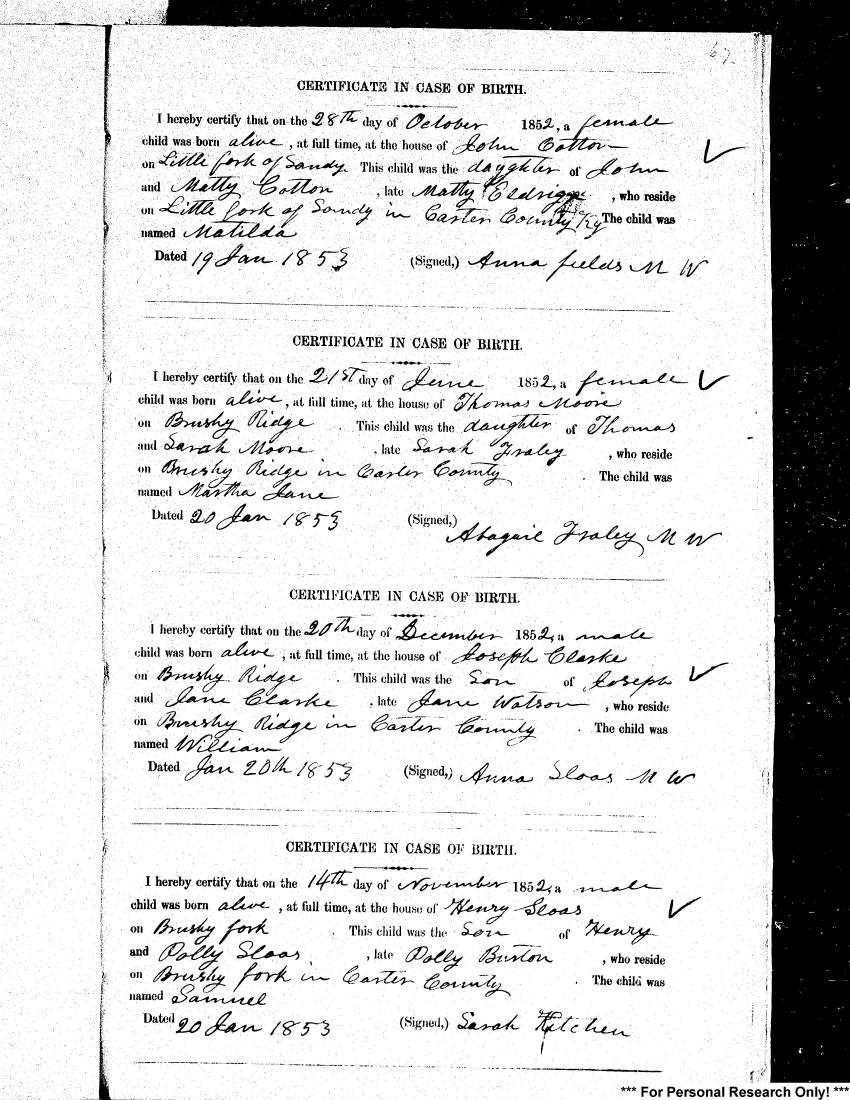 67
CERTIFICATE IN CASE OF BIRTH.
I hereby certify that on the 28th day of October 1852, a female
child was born alive, at full time, at the house of John Cotton
on Little fork of Sandy. This child was the daughter of John
and Matty Cotton, late Matty Eldrigge, who reside
on Little fork of Sandy in Carter County Ky The child was
named Matilda
Dated 19 Jan 1853 (Signed,) Anna fields M W
CERTIFICATE IN CASE OF BIRTH.
I hereby certify that on the 21st day of June 1852, a female
child was born alive, at full time, at the house of Thomas Moore
on Brushy Ridge. This child was the daughter of Thomas
and Sarah Moore, late Sarah Fraley, who reside
on Brushy Ridge in Carter County. The child was
named Martha Jane
Dated 20 Jan 1853 (Signed,)
Abagail Fraley M W
CERTIFICATE IN CASE OF BIRTH.
I hereby certify that on the 20th day of December 1852, a male
child was born alive, at full time, at the house of Joseph Clarke
on Brushy Ridge. This child was the Son of Joseph
and Jane Clarke, late Jane Watson, who reside
on Brushy Ridge in Carter County. The child was
named William
Dated Jan 20th 1853 (Signed,) Anna Sloas M W
CERTIFICATE IN CASE OF BIRTH.
I hereby certify that on the 14th day of November 1852, a male
child was born alive, at full time, at the house of Henry Sloas
on Brushy fork. This child was the Son of Henry
and Polly Sloas, late Polly Burton, who reside
on Brushy fork in Carter County. The child was
named Samuel
Dated 20 Jan 1853 (Signed,) Sarah Kitchen
*** For Personal Research Only! ***